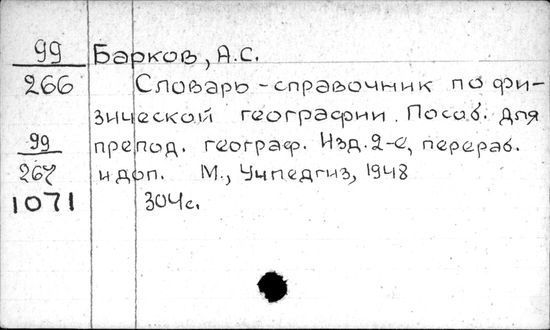 99 Барков, А.С.
266 Словарь-справочник по фи-
зической географии. Пособ. для
99 препод. географ. Изд. 2-е, перераб.
267 и доп. М., Учпедгиз, 1948
1071 304с.